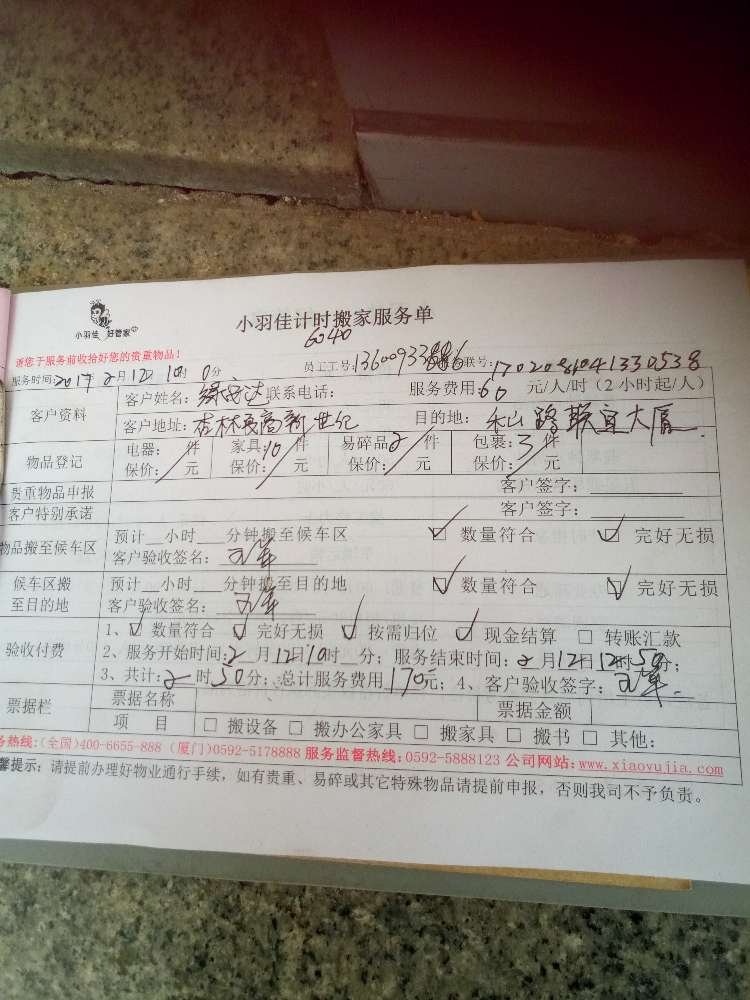 小羽佳 好管家
小羽佳计时搬家服务单
6040
请您于服务前收拾好您的贵重物品!
员工工号:13600933886 联号:
服务时间:2017 2月12日 10时0分
客户资料 客户姓名: 联系电话: 服务费用:60 元/人/时(2小时起/人)
客户地址:杏林夏商新世纪 目的地:禾山路联谊大厦.
物品登记 电器: 件 家具:10件 易碎品2件 包裹:3件
保价: 元 保价: 元 保价: 元 保价: 元
贵重物品申报 客户签字:
客户特别承诺 客户签字:
物品搬至候车区 预计__小时__分钟搬至候车区 ☑ 数量符合 ☑ 完好无损
客户验收签名:
候车区搬至目的地 预计__小时__分钟搬至目的地 ☑ 数量符合 ☑ 完好无损
客户验收签名:
验收付费 1、☑ 数量符合 ☑ 完好无损 ☑ 按需归位 ☑ 现金结算 □ 转账汇款
2、服务开始时间:2月12日10时__分;服务结束时间:2月12日12时50分;
3、共计:2时50分;总计服务费用170元;4、客户验收签字:
票据栏 票据名称 票据金额
项 目 □ 搬设备 □ 搬办公家具 □ 搬家具 □ 搬书 □ 其他:
务热线:(全国)400-6655-888 (厦门)0592-5178888 服务监督热线:0592-5888123 公司网站:www.xiaoyujia.com
馨提示:请提前办理好物业通行手续,如有贵重、易碎或其它特殊物品请提前申报,否则我司不予负责。